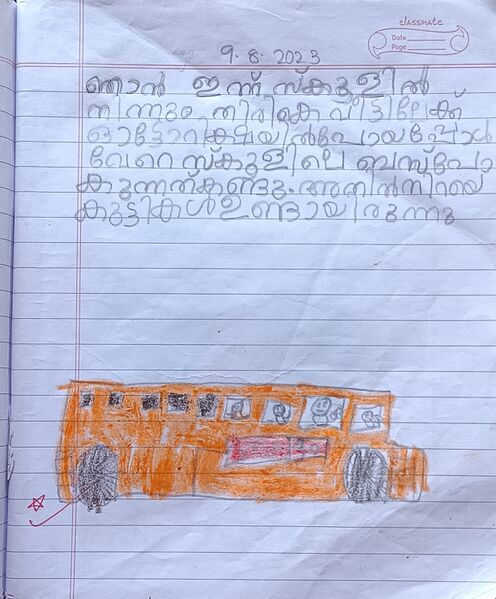 classmate
Date
Page
9.8.2023
ഞാൻ ഇന്ന് സ്കൂളിൽ
നിന്നും തിരികെ വീട്ടിലേക്ക്
ഓട്ടോറിക്ഷയിൽപോയപ്പോൾ
വേറെ സ്കൂളിലെ ബസ്പോ
കുന്നത്കണ്ടു. അതിൽനിറയെ
കുട്ടികൾഉണ്ടായിരുന്നു